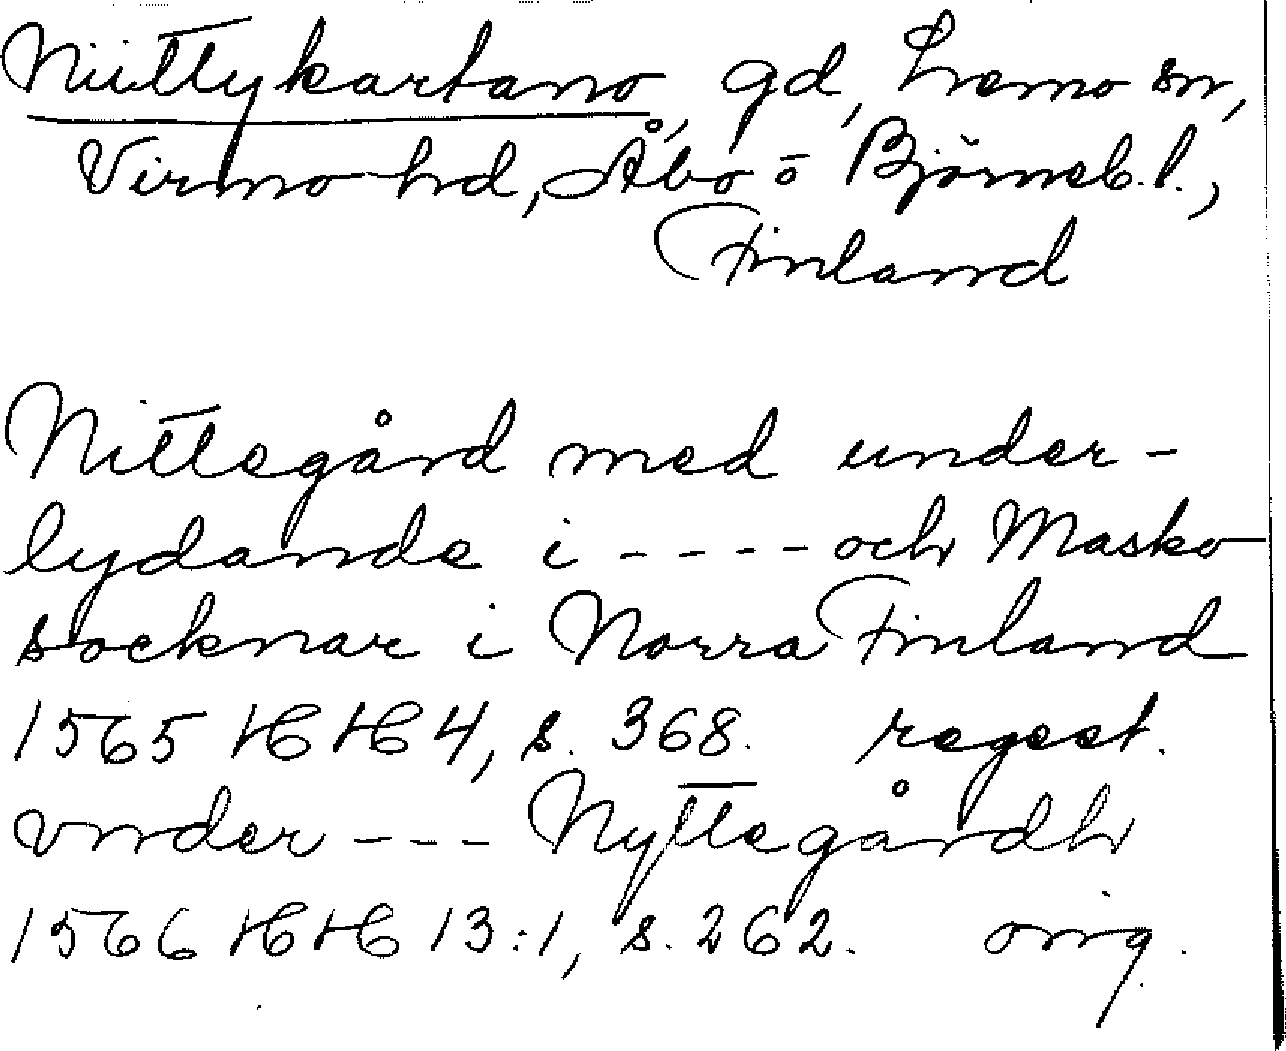 Niittykartano, gd, Lemo sn,
Virmo hd, Åbo o Björneb. l.,
Finland
Nittegård med under-
lydande i - - - - och Masko
socknar i Norra Finland
1565 HH 4, s. 368. regest.
vnder - - - Nyttegårdh
1566 HH 13:1, s. 262. orig.